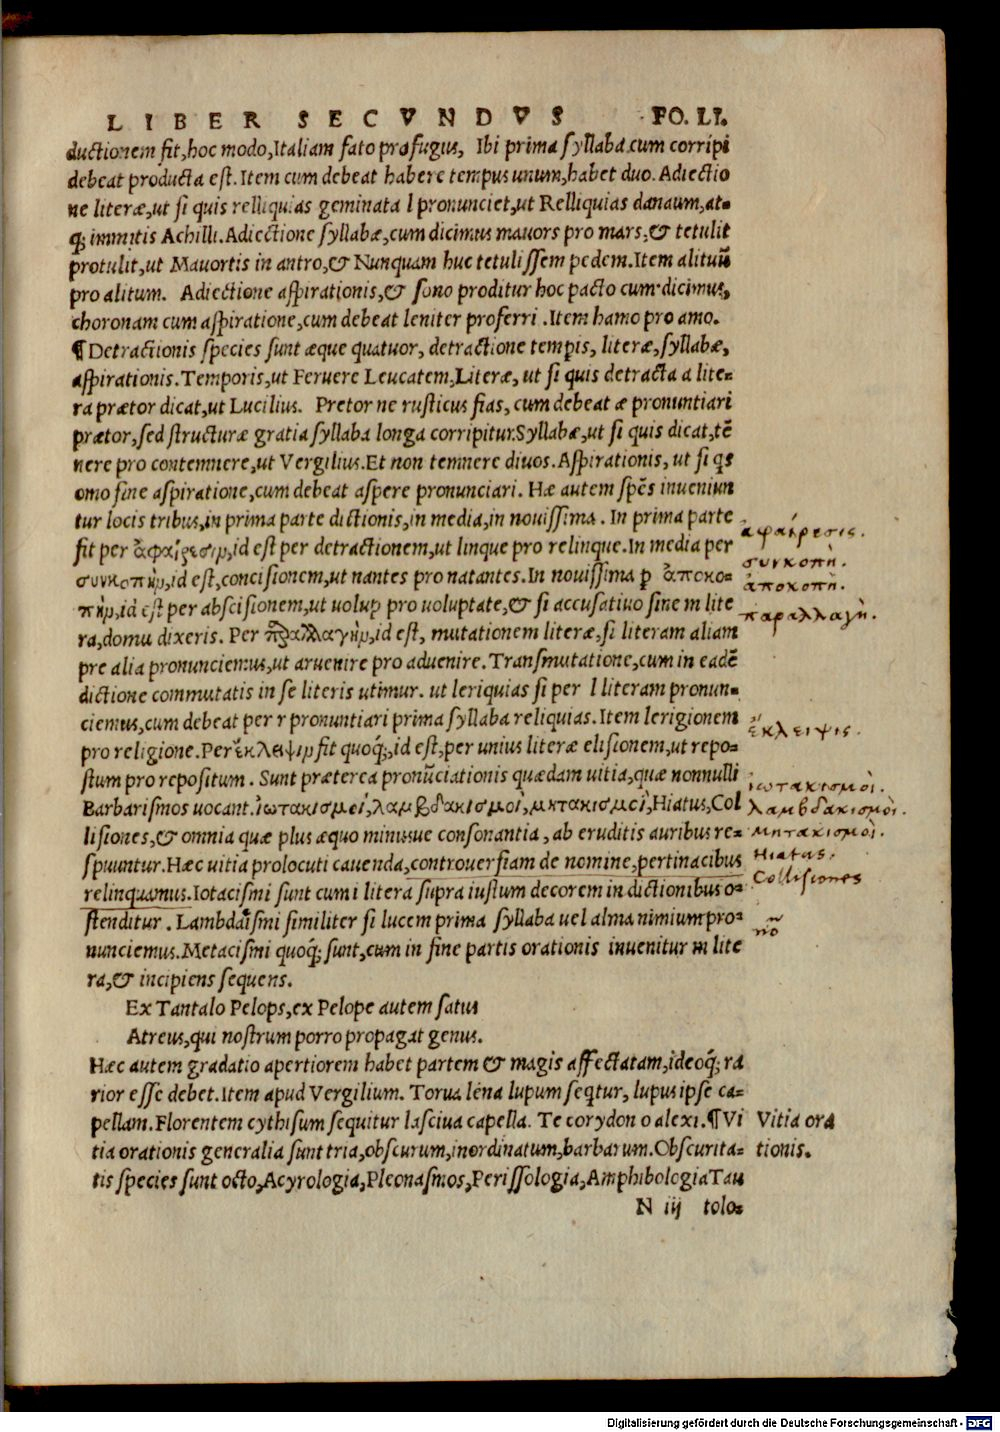 LIBER SECVNDVS FO. LI.
ductionem fit, hoc modo, Italiam fato profugus, Ibi prima syllaba cum corripi
debeat producta est. Item cum debeat habere tempus unum, habet duo. Adiectio
ne literæ, ut si quis relliquias geminata l pronunciet, ut Relliquias danaum, at-
q; immitis Achilli. Adiectione syllabæ, cum dicimus mauors pro mars, & tetulit
protulit, ut Mauortis in antro, & Nunquam huc tetulissem pedem. Item alituũ
pro alitum. Adiectione aspirationis, & sono proditur hoc pacto cum dicimus,
choronam cum aspiratione, cum debeat leniter proferri. Item hamo pro amo.
¶ Detractionis species sunt æque quatuor, detractione temp̃is, literæ, syllabæ,
aspirationis. Temporis, ut Feruere Leucatem, Literæ, ut si quis detracta a lite-
ra prætor dicat, ut Lucilius. Pretor ne rusticus fias, cum debeat æ pronuntiari
prætor, sed structuræ gratia syllaba longa corripitur. Syllabæ, ut si quis dicat, tē
nere pro contemnere, ut Vergilius. Et non temnere diuos. Aspirationis, ut si qs
omo sine aspiratione, cum debeat aspere pronunciari. Hæ autem spēs inueniun
tur locis tribus, in prima parte dictionis, in media, in nouissima. In prima parte
fit per ἀφαίρεσιν, id est per detractionem, ut linque pro relinque. In media per
συνκοπὴν, id est, concisionem, ut nantes pro natantes. In nouissima ꝑ ἀποκο-
πὴν, id est per abscisionem, ut uolup pro uoluptate, & si accusatiuo sine m lite
ra, domu dixeris. Per παραλλαγὴν, id est, mutationem literæ, si literam aliam
pre alia pronunciemus, ut aruenire pro aduenire. Transmutatione, cum in eadē
dictione commutatis in se literis utimur. ut leriquias si per l literam pronun-
ciemus, cum debeat per r pronuntiari prima syllaba reliquias. Item lerigionem
pro religione. Per ἔκλειψιν fit quoq;, id est, per unius literæ elisionem, ut repo-
stum pro repositum. Sunt præterea pronũciationis quædam uitia, quæ nonnulli
Barbarismos uocant. ἰωτακισμοὶ, λαμβδακισμοὶ, μητακισμοὶ, Hiatus, Col
lisiones, & omnia quæ plus æquo minusue consonantia, ab eruditis auribus re-
spuuntur. Hæc uitia prolocuti cauenda, controuersiam de nomine, pertinacibus
relinquamus. Iotacismi sunt cum i litera supra iustum decorem in dictionibus o-
stenditur. Lambdaismi similiter si lucem prima syllaba uel alma nimium pro-
nunciemus. Metacismi quoq; sunt, cum in fine partis orationis inuenitur m lite
ra, & incipiens sequens.
Ex Tantalo Pelops, ex Pelope autem satus
Atreus, qui nostrum porro propagat genus.
Hæc autem gradatio apertiorem habet partem & magis affectatam, ideoq; ra
rior esse debet. Item apud Vergilium. Torua lena lupum seqtur, lupus ipse ca-
pellam. Florentem cythisum sequitur lasciua capella. Te corydon o alexi. ¶ Vi
tia orationis generalia sunt tria, obscurum, inordinatum, barbarum. Obscurita-
tis species sunt octo, Acyrologia, Pleonasmos, Perissologia, Amphibologia Tau
N iij tolo-
ἀφαίρεσις.
συνκοπὴ.
ἀποκοπὴ.
παραλλαγὴ.
ἔκλειψις.
ἰωτακισμοὶ.
λαμβδακισμοὶ.
μητακισμοὶ.
Hiatus.
Collisiones
Vitia ora
tionis.
Digitalisierung gefördert durch die Deutsche Forschungsgemeinschaft - DFG